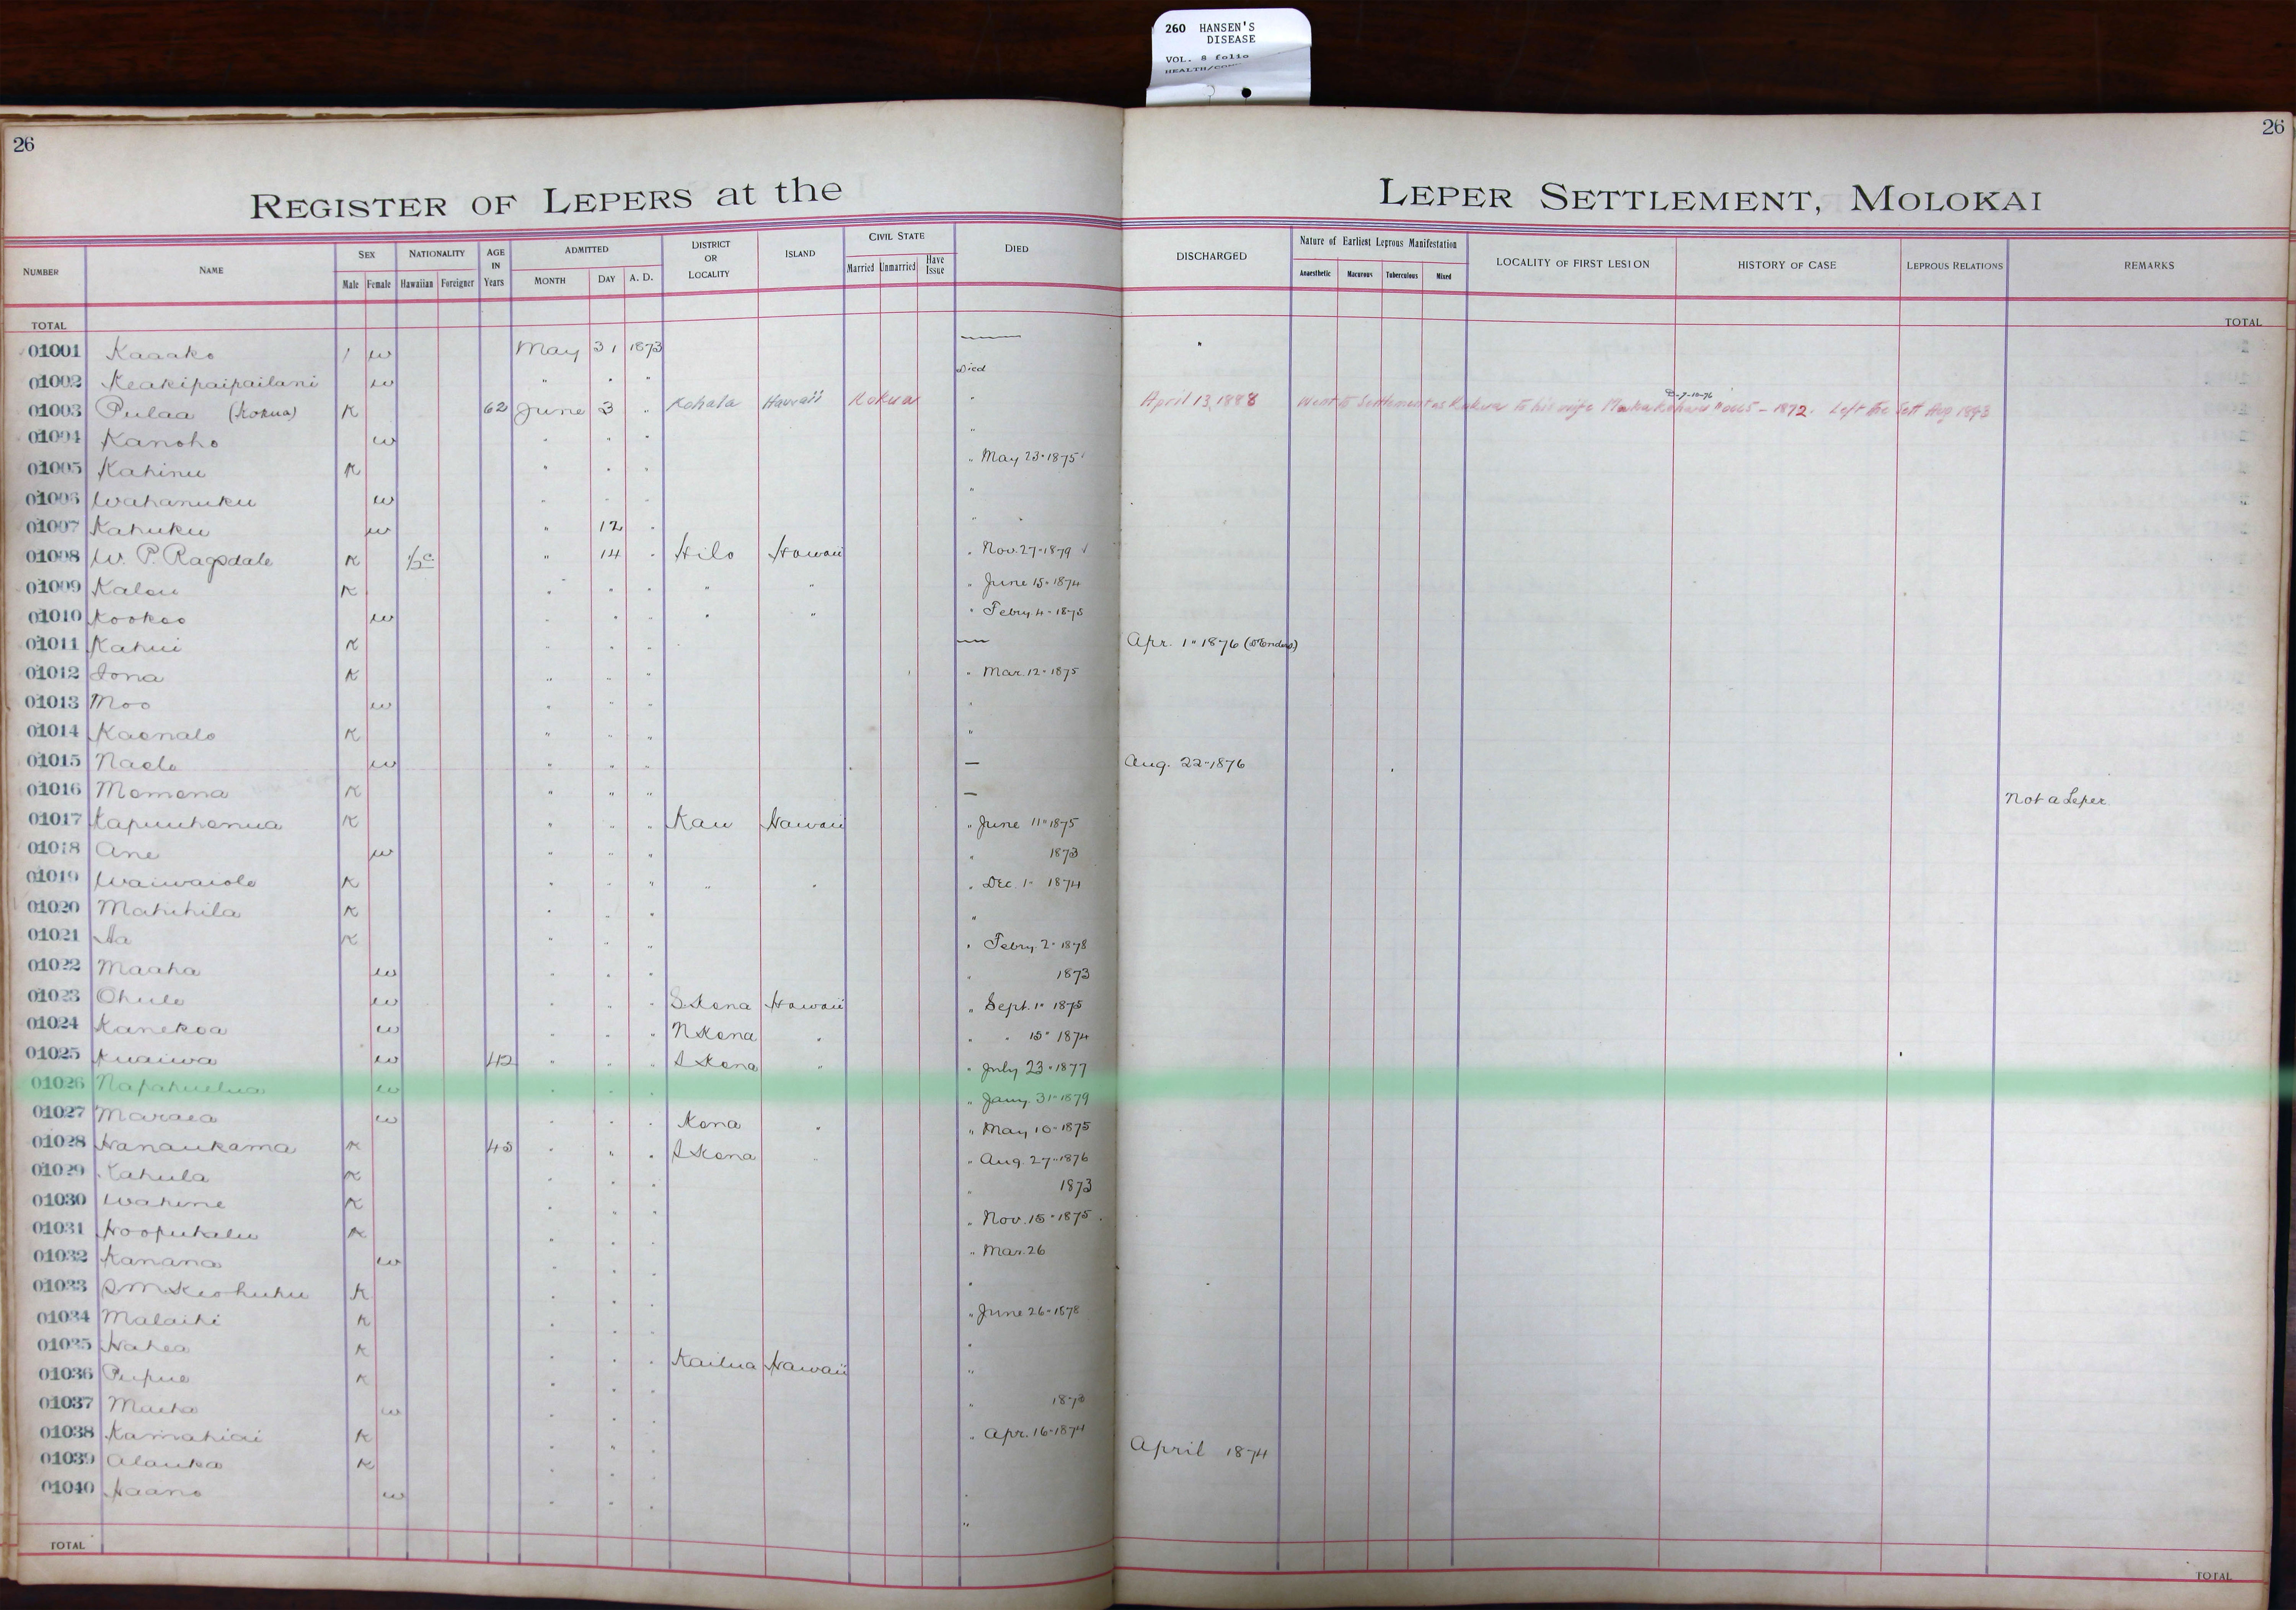 260 HANSEN'S
DISEASE
VOL. 8 folio
HEALTH/
26
26
REGISTER OF LEPERS at the LEPER SETTLEMENT, MOLOKAI
NUMBER NAME SEX Male Female NATIONALITY Hawaiian Foreigner AGE IN Years ADMITTED MONTH DAY A. D. DISTRICT OR LOCALITY ISLAND CIVIL STATE Married Unmarried Have Issue DIED DISCHARGED Nature of Earliest Leprous Manifestation Anaesthetic Macurous Tuberculous Mixed LOCALITY OF FIRST LESION HISTORY OF CASE LEPROUS RELATIONS REMARKS
TOTAL TOTAL
01001 Kaaako w May 31 1873 — "
01002 Keakipaipailani w " " " Died
01003 Pulaa (Kokua) K 62 June 3 " Kohala Hawaii Kokua " April 13, 1888 Went to Settlement as Kokua to his wife 1872. Left the Sett Aug 1893
01004 Kanoho w " " " "
01005 Kahinu K " " " " May 23 " 1875
01006 Wahanuku w " " " "
01007 Kahuku w " 12 " "
01008 W. P. Ragsdale K 1/2 c " 14 " Hilo Hawaii " Nov. 27 " 1879
01009 Kalou K " " " " " " June 15 " 1874
01010 Kookoo w " " " " " " Febry 4 - 1875
01011 Kahui K " " " — Apr. 1 " 1876
01012 Iona K " " " " Mar. 12 " 1875
01013 Moo w " " " "
01014 Kaonalo K " " " "
01015 Naelo w " " " — Aug. 22 - 1876
01016 Momona K " " " — Not a Leper
01017 Kapuuhonua K " " " Kau Hawaii " June 11 " 1875
01018 Ane w " " " " 1873
01019 Waiwaiole K " " " " " " Dec. 1 - 1874
01020 Mahihila K " " " "
01021 Aa K " " " " Febry. 2 " 1878
01022 Maaha w " " " " 1873
01023 Ohule w " " " S. Kona Hawaii " Sept. 1 " 1875
01024 Kanekoa w " " " N Kona " " " 15 " 1874
01025 Kuaiwa w 42 " " " S Kona " " July 23 " 1877
01026 Napahuelua w " " " " Jany. 31 " 1879
01027 Maraea w " " " Kona " " May 10 " 1875
01028 Hanaukama K 43 " " " S Kona " " Aug. 27 " 1876
01029 Kahula K " " " " 1873
01030 Wahine K " " " " Nov. 15 " 1875
01031 Hoopukalu K " " " " Mar. 26
01032 Kanana w " " " "
01033 S M Keohuhu K " " " " June 26 " 1878
01034 Malaihi K " " " "
01035 Hahea K " " " Kailua Hawaii "
01036 Pupue K " " " " 1873
01037 Mauha w " " " " Apr. 16 " 1874
01038 Kamahiai K " " " April 1874
01039 Alauka K " " " "
01040 Haano w " " " "
TOTAL TOTAL